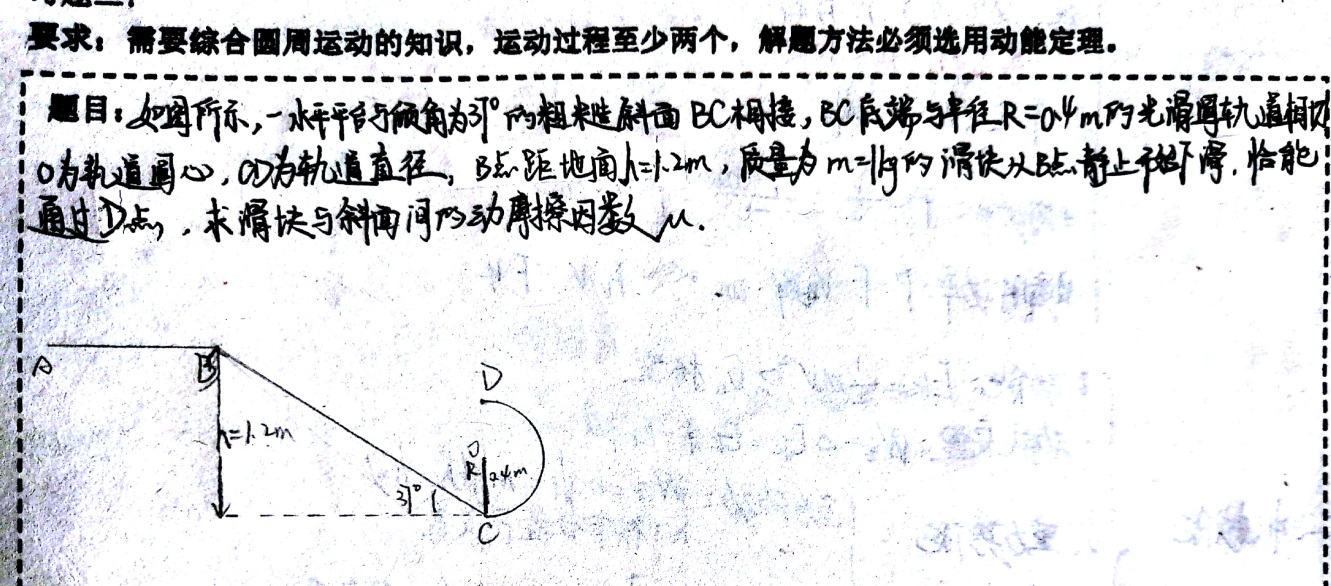 要求：需要综合圆周运动的知识，运动过程至少两个，解题方法必须选用动能定理。
题目：如图所示，一水平平台与倾角为37°的粗糙斜面BC相接，BC底端与半径R=0.4m的光滑圆轨道相切
O为轨道圆心，CD为轨道直径，B点距地面h=1.2m，质量为m=1kg的滑块从B点静止开始下滑，恰能
通过D点，求滑块与斜面间的动摩擦因数μ.
A
B
D
h=1.2m
O
R 0.4m
37°
C